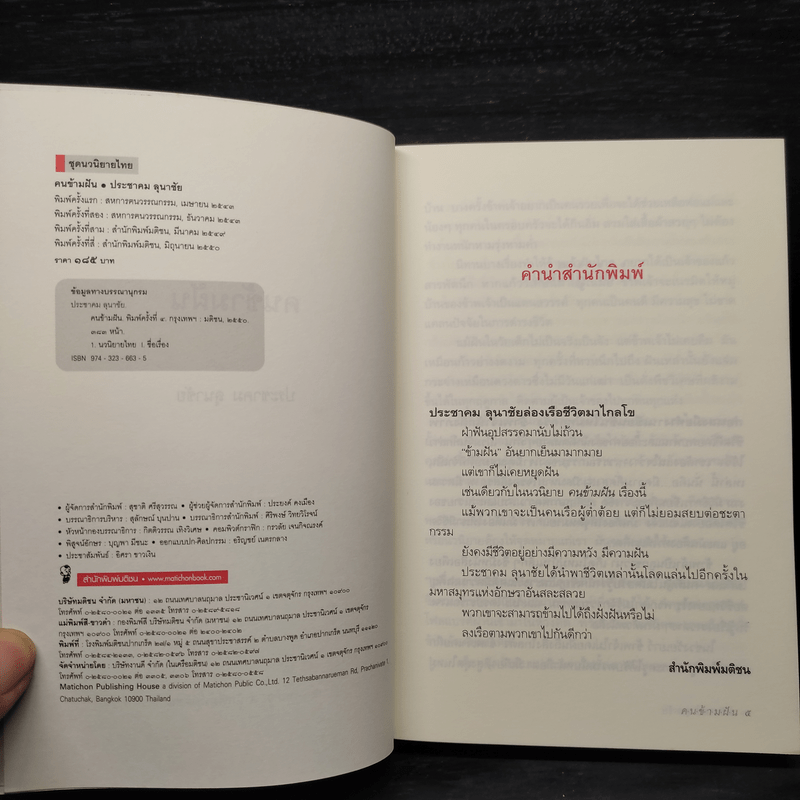 ชุดนวนิยายไทย
คนข้ามฝัน ● ประชาคม ลุนาชัย
พิมพ์ครั้งแรก : สหการคนวรรณกรรม, เมษายน ๒๕๔๓
พิมพ์ครั้งที่สอง : สหการคนวรรณกรรม, ธันวาคม ๒๕๔๓
พิมพ์ครั้งที่สาม : สำนักพิมพ์มติชน, มีนาคม ๒๕๔๙
พิมพ์ครั้งที่สี่ : สำนักพิมพ์มติชน, มิถุนายน ๒๕๕๐
ราคา ๑๘๕ บาท
ข้อมูลทางบรรณานุกรม
ประชาคม ลุนาชัย
คนข้ามฝัน. พิมพ์ครั้งที่ ๔. กรุงเทพฯ : มติชน, ๒๕๕๐.
๓๘๓ หน้า.
1. นวนิยายไทย I. ชื่อเรื่อง
ISBN 974 - 323 - 663 - 5
• ผู้จัดการสำนักพิมพ์ : สุชาติ ศรีสุวรรณ • ผู้ช่วยผู้จัดการสำนักพิมพ์ : ประยงค์ คงเมือง
• บรรณาธิการบริหาร : สุลักษณ์ บุนปาน • บรรณาธิการสำนักพิมพ์ : ศิริพงษ์ วิทยวิโรจน์
• หัวหน้ากองบรรณาธิการ : กิตติวรรณ เทิงวิเศษ • คอมพิวต์กราฟิก : กรวลัย เจนกิจณรงค์
• พิสูจน์อักษร : บุญพา มีชนะ • ออกแบบปก-ศิลปกรรม : อริญชย์ เนตรกลาง
• ประชาสัมพันธ์ : อิศรา ขาวเงิน
สำนักพิมพ์มติชน • www.matichonbook.com
บริษัทมติชน จำกัด (มหาชน) : ๑๒ ถนนเทศบาลนฤมาล ประชานิเวศน์ ๑ เขตจตุจักร กรุงเทพฯ ๑๐๙๐๐
โทรศัพท์ ๐-๒๕๘๐-๐๐๒๑ ต่อ ๑๒๓๕ โทรสาร ๐-๒๕๘๙-๕๘๑๘
แม่พิมพ์สี-ขาวดำ : กองพิมพ์สี บริษัทมติชน จำกัด (มหาชน) ๑๒ ถนนเทศบาลนฤมาล ประชานิเวศน์ ๑ เขตจตุจักร
กรุงเทพฯ ๑๐๙๐๐ โทรศัพท์ ๐-๒๕๘๐-๐๐๒๑ ต่อ ๒๔๐๐-๒๔๐๒
พิมพ์ที่ : โรงพิมพ์มติชนปากเกร็ด ๒๗/๑ หมู่ ๕ ถนนสุขาประชาสรรค์ ๒ ตำบลบางพูด อำเภอปากเกร็ด นนทบุรี ๑๑๑๒๐
โทรศัพท์ ๐-๒๕๘๔-๒๑๓๓, ๐-๒๕๘๒-๐๕๙๖ โทรสาร ๐-๒๕๘๒-๐๕๙๗
จัดจำหน่ายโดย : บริษัทงานดี จำกัด (ในเครือมติชน) ๑๒ ถนนเทศบาลนฤมาล ประชานิเวศน์ ๑ เขตจตุจักร กรุงเทพฯ ๑๐๙๐๐
โทรศัพท์ ๐-๒๕๘๐-๐๐๒๑ ต่อ ๓๓๐๕, ๓๓๐๖ โทรสาร ๐-๒๕๘๐-๐๕๕๘
Matichon Publishing House a division of Matichon Public Co.,Ltd. 12 Tethsabannarueman Rd, Prachanivate
Chatuchak, Bangkok 10900 Thailand
คำนำสำนักพิมพ์
ประชาคม ลุนาชัยล่องเรือชีวิตมาไกลโข
ฝ่าฟันอุปสรรคมานับไม่ถ้วน
"ข้ามฝัน" อันยากเย็นมามากมาย
แต่เขาก็ไม่เคยหยุดฝัน
เช่นเดียวกับในนวนิยาย คนข้ามฝัน เรื่องนี้
แม้พวกเขาจะเป็นคนเรือผู้ต่ำต้อย แต่ก็ไม่ยอมสยบต่อชะตา
กรรม
ยังคงมีชีวิตอยู่อย่างมีความหวัง มีความฝัน
ประชาคม ลุนาชัยได้นำพาชีวิตเหล่านั้นโลดแล่นไปอีกครั้งใน
มหาสมุทรแห่งอักษราอันสละสลวย
พวกเขาจะสามารถข้ามไปได้ถึงฝั่งฝันหรือไม่
ลงเรือตามพวกเขาไปกันดีกว่า
สำนักพิมพ์มติชน
คนข้ามฝัน ๕